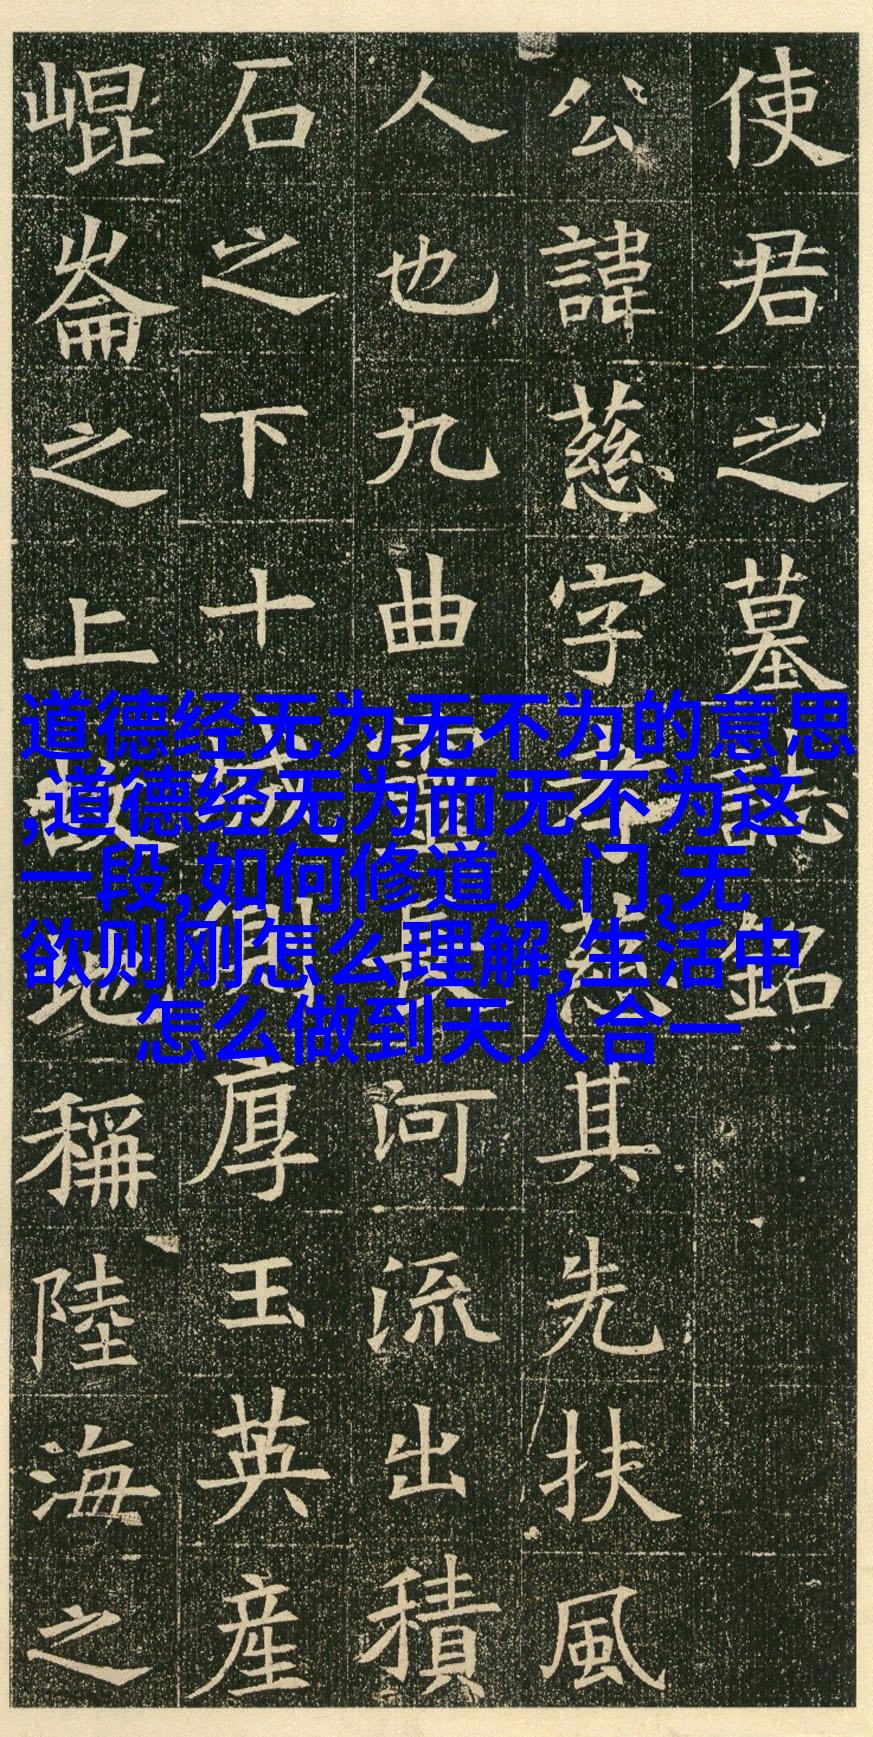 使君之墓誌銘
公諱慈字孝慈其先扶風
人也九曲靈長河流出積
石之下十城側厚玉英産
崐崘之上故地稱陸海之
道德经无为无不为的意思
,道德经无为而无不为这
一段,如何修道入门,无
欲则刚怎么理解,生活中
怎么做到天人合一